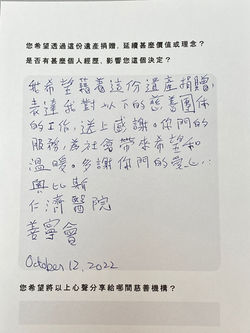 您希望透過這份遺產捐贈，延續甚麼價值或理念？
是否有甚麼個人經歷，影響您這個決定？
我希望藉著這份遺產捐贈，
表達我對以下的慈善團体
的工作，送上感謝。你們的
服務，為社會帶來希望和
溫暖。多謝你們的愛心：
奧比斯
仁濟醫院
善寧會
October 12, 2022
您希望將以上心聲分享給哪間慈善機構？